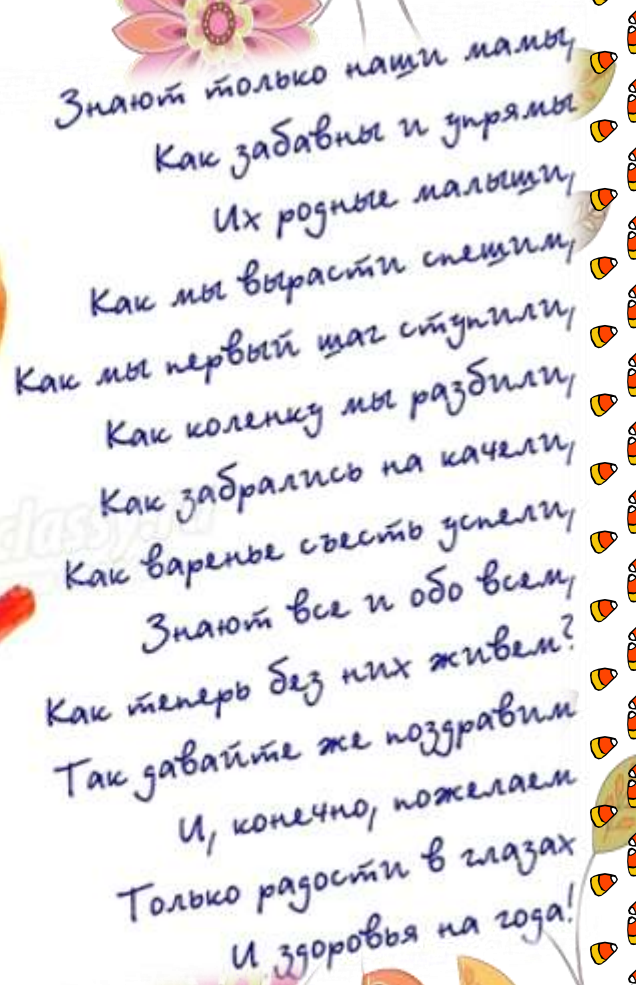 Знают только наши мамы,
Как забавны и упрямы
Их родные малыши,
Как мы вырасти спешим,
Как мы первый шаг ступили,
Как коленку мы разбили,
Как забрались на качели,
Как варенье съесть успели,
Знают все и обо всем,
Как теперь без них живем?
Так давайте же поздравим
И, конечно, пожелаем
Только радости в глазах
И здоровья на года!